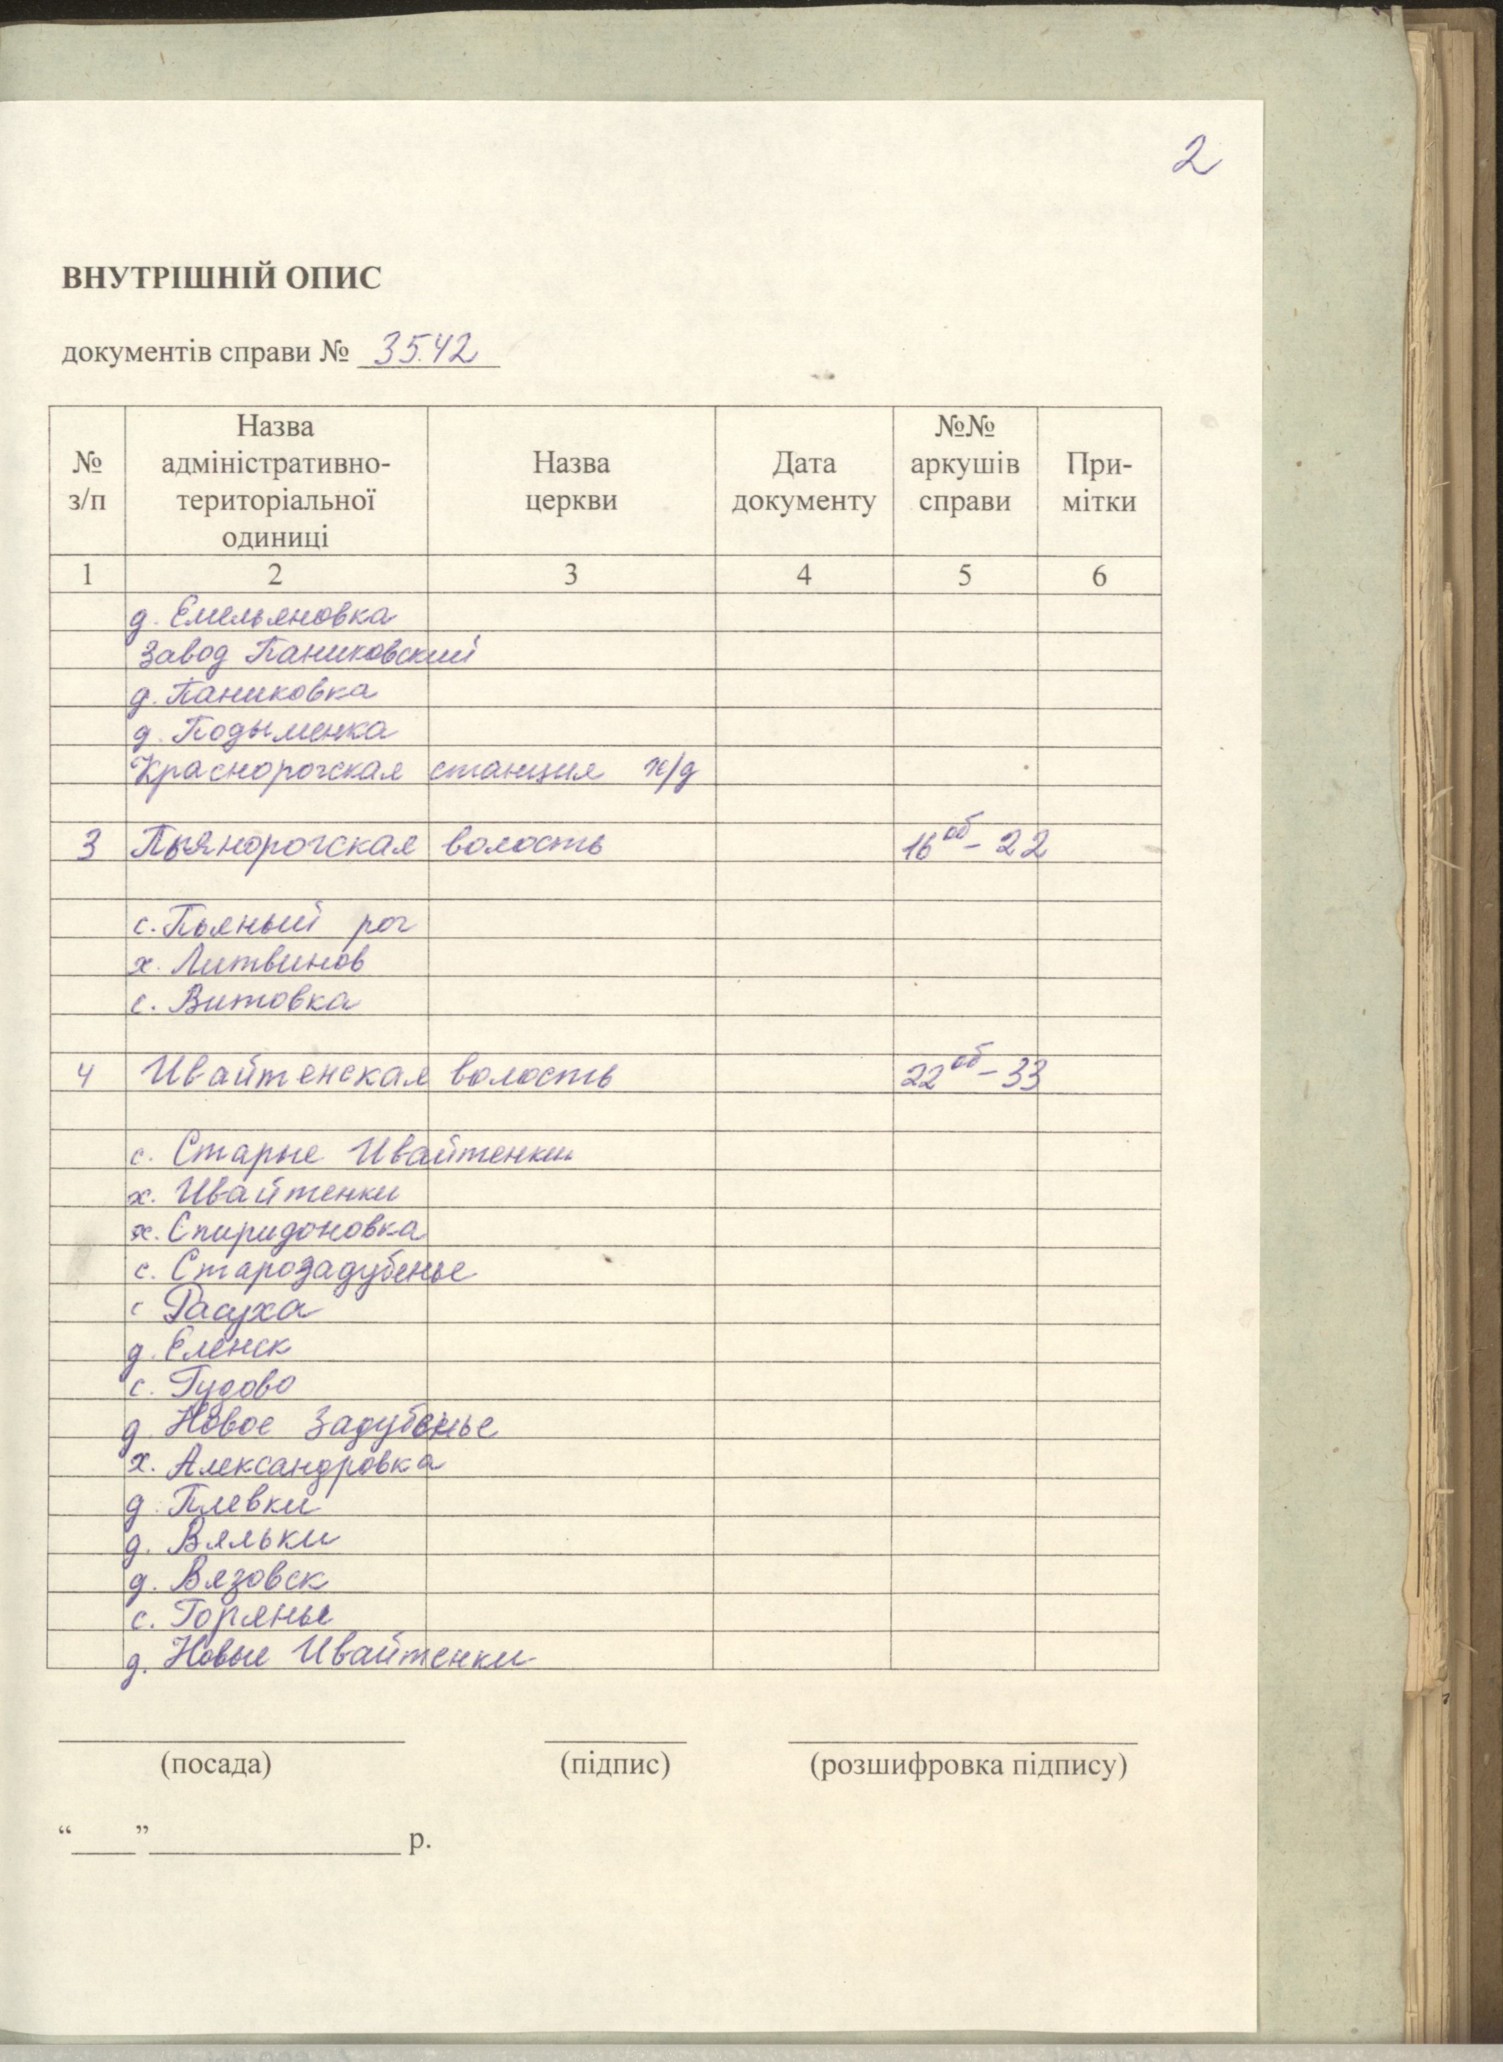 2
ВНУТРІШНІЙ ОПИС
документів справи № 3542
№ з/п | Назва адміністративно-територіальної одиниці | Назва церкви | Дата документу | №№ аркушів справи | Примітки
1 2 3 4 5 6
д. Емельяновка
Завод Паниковский
д. Паниковка
д. Подыменка
Краснорогская станция ж/д
3 Пьянорогская волость 16об - 22
с. Пьяный рог
х. Литвинов
с. Витовка
4 Ивайтенская волость 22об - 33
с. Старые Ивайтенки
х. Ивайтенки
х. Спиридоновка
с. Старозадубенье
с Расуха
д. Еленск
с. Гудово
д. Новое Задубенье
х. Александровка
д. Плевки
д. Вяльки
д. Вязовск
с. Горянье
д. Новые Ивайтенки
(посада) (підпис) (розшифровка підпису)
“____”________________ р.